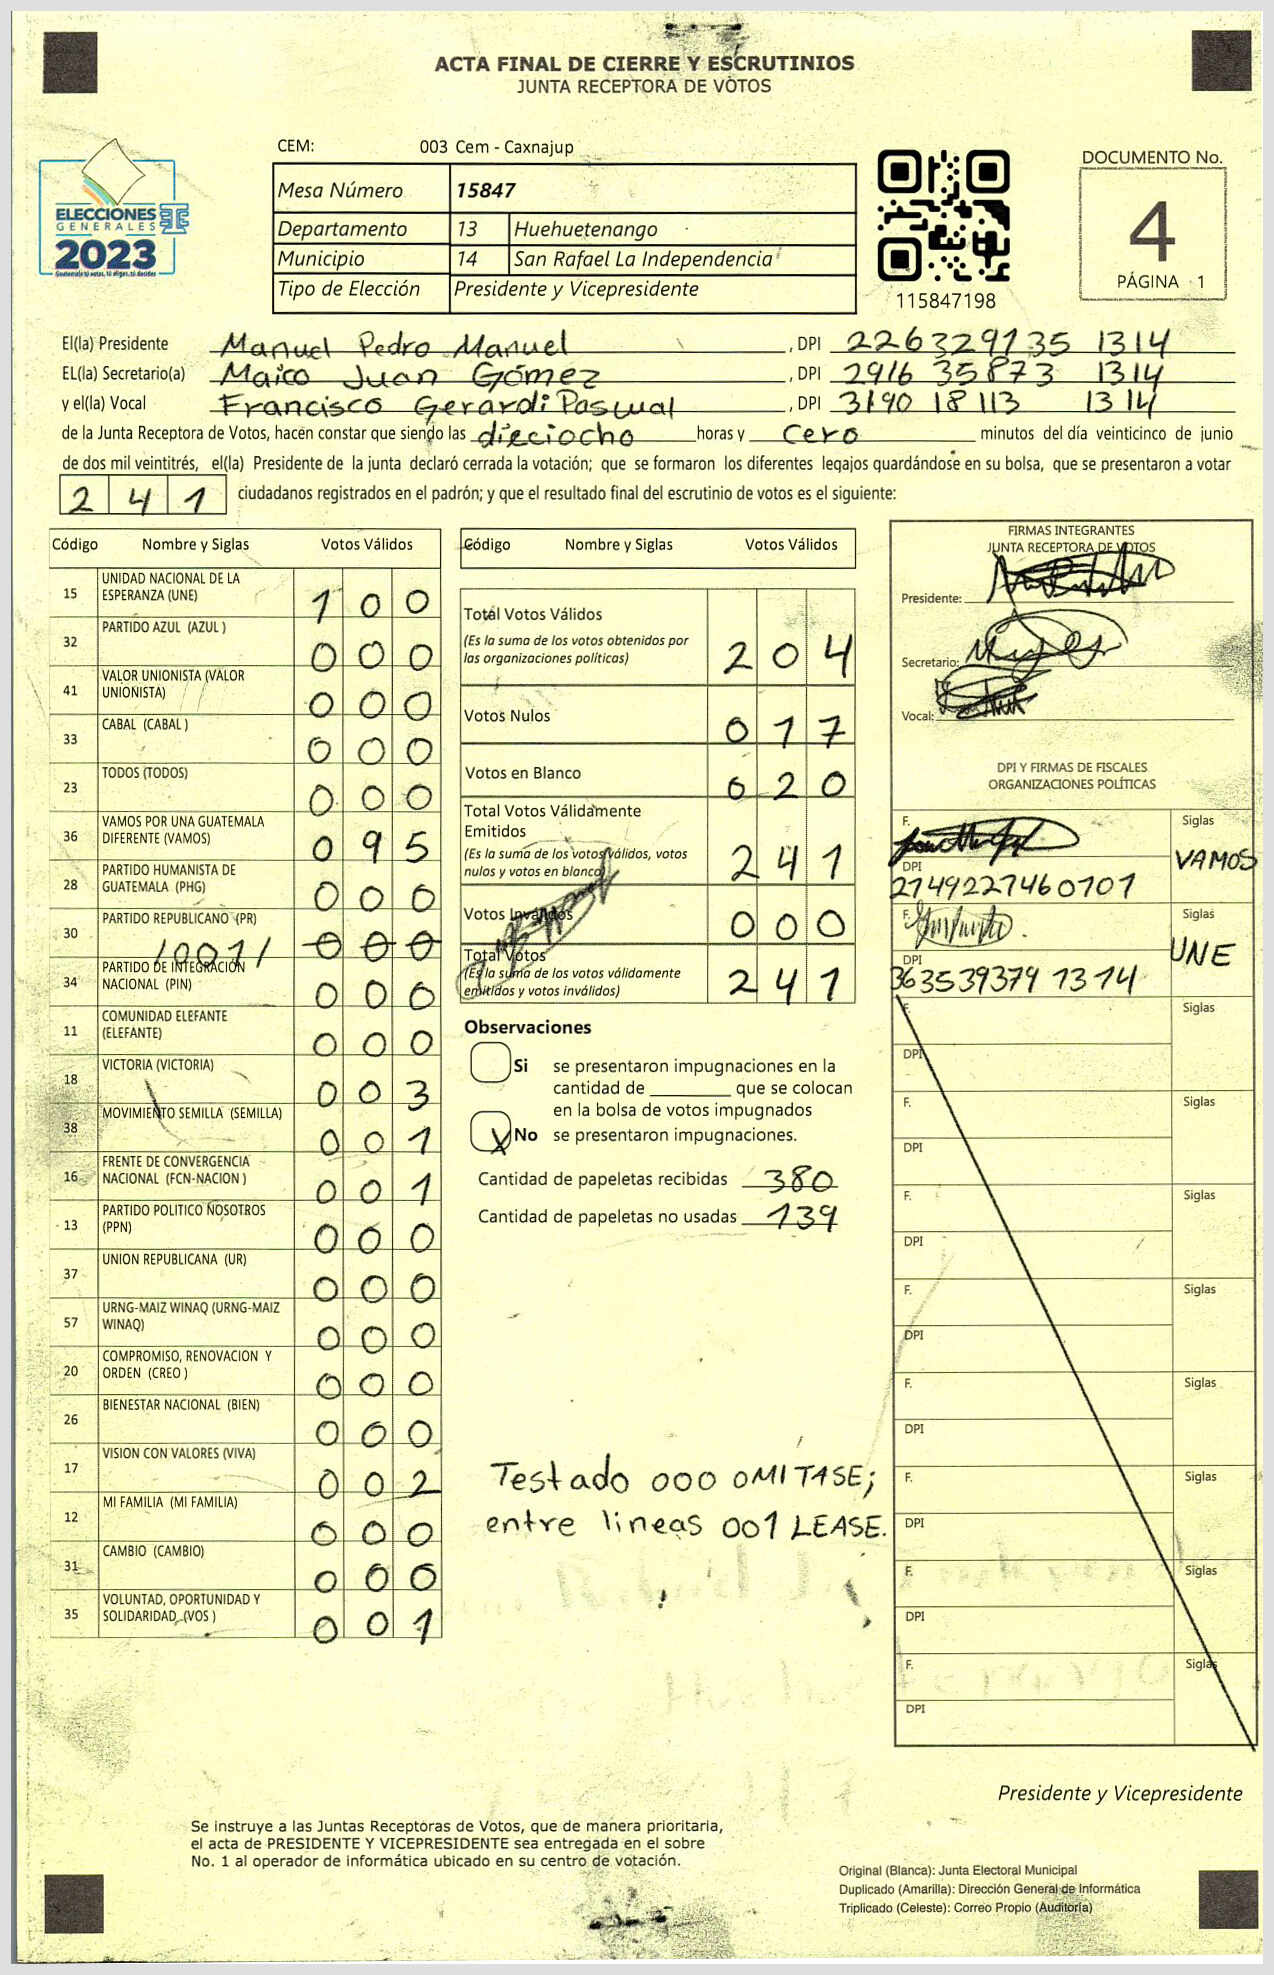 ACTA FINAL DE CIERRE Y ESCRUTINIOS
JUNTA RECEPTORA DE VOTOS
CEM: 003 Cem - Caxnajup
Mesa Número 15847
Departamento 13 Huehuetenango
Municipio 14 San Rafael La Independencia
Tipo de Elección Presidente y Vicepresidente
ELECCIONES
GENERALES
2023
Guatemala tú votas, tú eliges, tú decides
115847198
DOCUMENTO No.
4
PÁGINA 1
El(la) Presidente Manuel Pedro Manuel , DPI 226329735 1314
EL(la) Secretario(a) Maico Juan Gómez , DPI 2916 35873 1314
y el(la) Vocal Francisco Gerardi Pascual , DPI 3190 18113 1314
de la Junta Receptora de Votos, hacen constar que siendo las dieciocho horas y cero minutos del día veinticinco de junio
de dos mil veintitrés, el(la) Presidente de la junta declaró cerrada la votación; que se formaron los diferentes legajos guardándose en su bolsa, que se presentaron a votar
241 ciudadanos registrados en el padrón; y que el resultado final del escrutinio de votos es el siguiente:
Código Nombre y Siglas Votos Válidos
15 UNIDAD NACIONAL DE LA ESPERANZA (UNE) 100
32 PARTIDO AZUL (AZUL ) 000
41 VALOR UNIONISTA (VALOR UNIONISTA) 000
33 CABAL (CABAL ) 000
23 TODOS (TODOS) 000
36 VAMOS POR UNA GUATEMALA DIFERENTE (VAMOS) 095
28 PARTIDO HUMANISTA DE GUATEMALA (PHG) 000
30 PARTIDO REPUBLICANO (PR) /001/ 000
34 PARTIDO DE INTEGRACIÓN NACIONAL (PIN) 000
11 COMUNIDAD ELEFANTE (ELEFANTE) 000
18 VICTORIA (VICTORIA) 003
38 MOVIMIENTO SEMILLA (SEMILLA) 001
16 FRENTE DE CONVERGENCIA NACIONAL (FCN-NACION ) 001
13 PARTIDO POLITICO NOSOTROS (PPN) 000
37 UNION REPUBLICANA (UR) 000
57 URNG-MAIZ WINAQ (URNG-MAIZ WINAQ) 000
20 COMPROMISO, RENOVACION Y ORDEN (CREO ) 000
26 BIENESTAR NACIONAL (BIEN) 000
17 VISION CON VALORES (VIVA) 002
12 MI FAMILIA (MI FAMILIA) 000
31 CAMBIO (CAMBIO) 000
35 VOLUNTAD, OPORTUNIDAD Y SOLIDARIDAD (VOS ) 001
Código Nombre y Siglas Votos Válidos
Total Votos Válidos 204
(Es la suma de los votos obtenidos por
las organizaciones políticas)
Votos Nulos 017
Votos en Blanco 020
Total Votos Válidamente
Emitidos 241
(Es la suma de los votos válidos, votos
nulos y votos en blanco)
Votos Inválidos 000
Total Votos 241
(Es la suma de los votos válidamente
emitidos y votos inválidos)
Observaciones
Si se presentaron impugnaciones en la
cantidad de ________ que se colocan
en la bolsa de votos impugnados
X No se presentaron impugnaciones.
Cantidad de papeletas recibidas 380
Cantidad de papeletas no usadas 139
Testado 000 OMITASE;
entre lineas 001 LEASE.
FIRMAS INTEGRANTES
JUNTA RECEPTORA DE VOTOS
Presidente:
Secretario:
Vocal:
DPI Y FIRMAS DE FISCALES
ORGANIZACIONES POLÍTICAS
F. Siglas
VAMOS
DPI
2749227460101
F. Siglas
UNE
DPI
363539379 1314
F. Siglas
DPI
F. Siglas
DPI
F. Siglas
DPI
F. Siglas
DPI
F. Siglas
DPI
F. Siglas
DPI
F. Siglas
DPI
F. Siglas
DPI
Presidente y Vicepresidente
Se instruye a las Juntas Receptoras de Votos, que de manera prioritaria,
el acta de PRESIDENTE Y VICEPRESIDENTE sea entregada en el sobre
No. 1 al operador de informática ubicado en su centro de votación.
Original (Blanca): Junta Electoral Municipal
Duplicado (Amarilla): Dirección General de Informática
Triplicado (Celeste): Correo Propio (Auditoría)